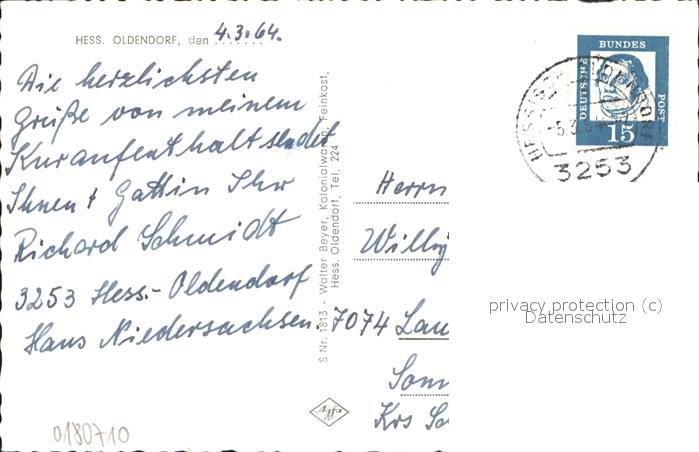 HESS. OLDENDORF, den 4.3.64.
Die herzlichsten
Grüße von meinem
Kuraufenthalt sendet
Ihnen + Gattin Ihr
Richard Schmidt
3253 Hess.- Oldendorf
Haus Niedersachsen.
S Nr. 1813 - Walter Beyer, Kolonialwaren, Feinkost,
Hess. Oldendorf, Tel. 224
DEUTSCHE
BUNDES
POST
15
-5.3.64
3253
Herrn
Willy
7074 Lau
Som
Krs Sc
Agfa
privacy protection (c)
Datenschutz
0180710